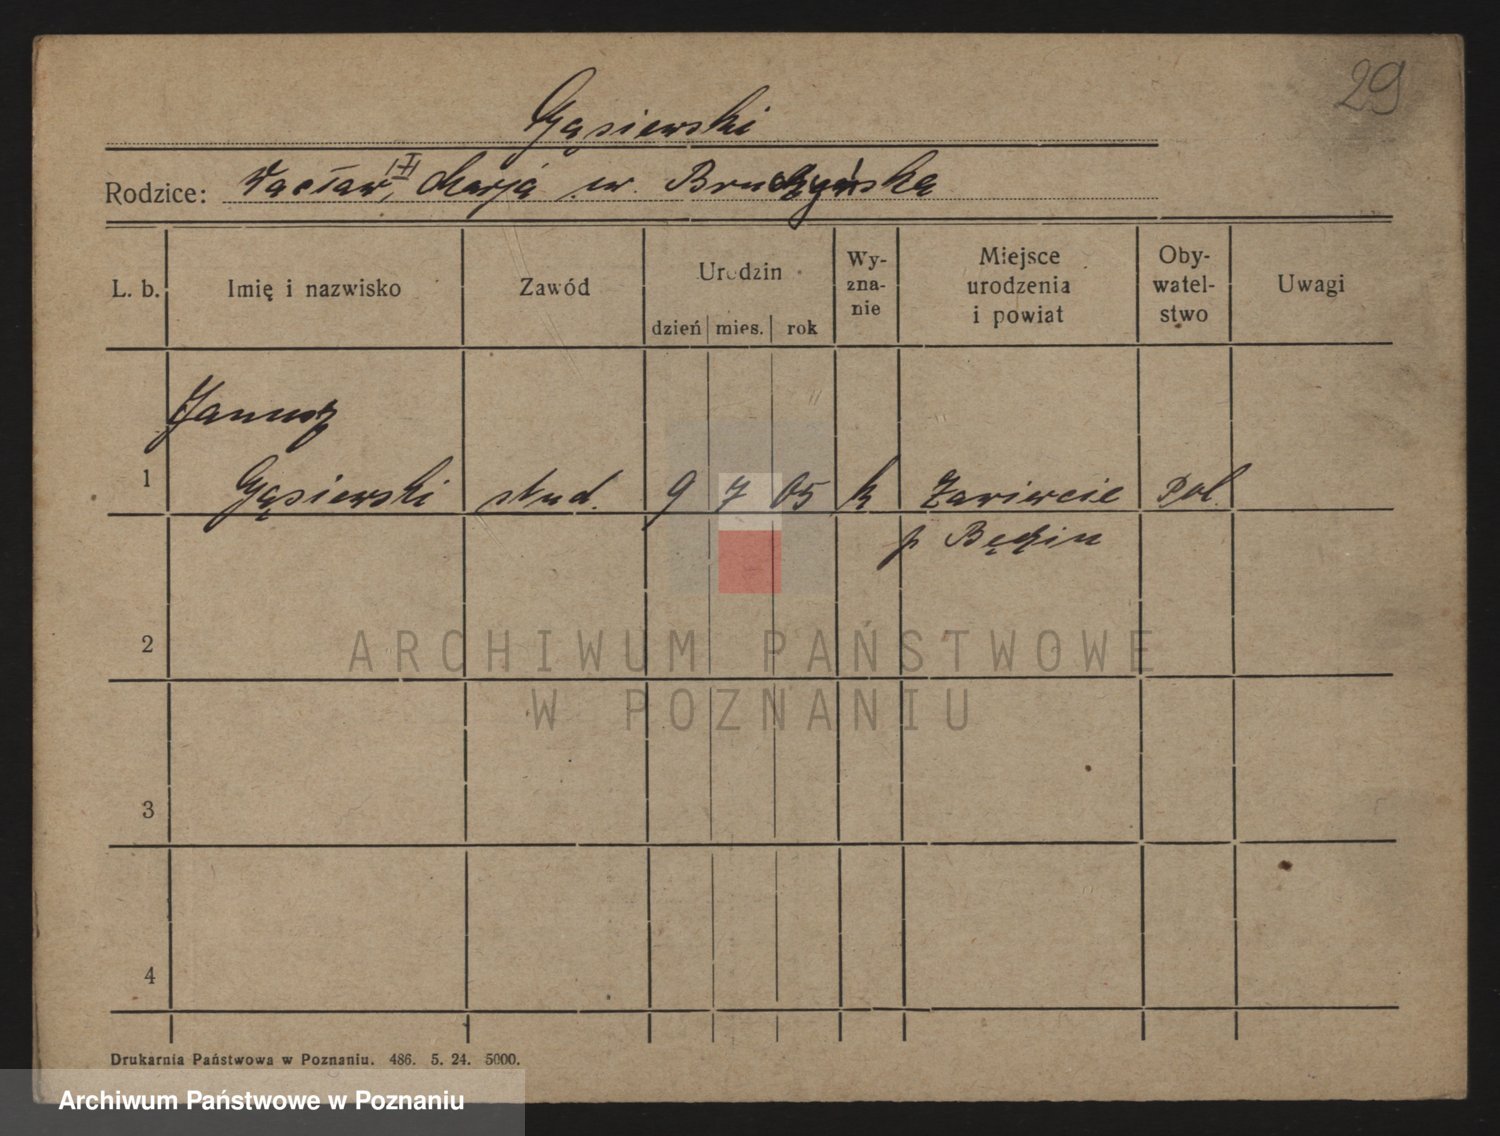 29
Gąsiewski
Rodzice: Wacław, I Marja ur. Bruczyńska
L. b. Imię i nazwisko Zawód Urodzin dzień mies. rok Wy-zna-nie Miejsce urodzenia i powiat Oby-watel-stwo Uwagi
Janusz
1 Gąsiewski stud. 9 7 05 k Zawiercie Pol.
p Będzin
2
ARCHIWUM PAŃSTWOWE
W POZNANIU
3
4
Drukarnia Państwowa w Poznaniu. 486. 5. 24. 5000.
Archiwum Państwowe w Poznaniu